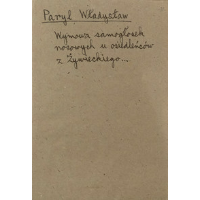 Paryl Władysław
Wymowa samogłosek
nosowych u osiedleńców
z Żywieckiego...